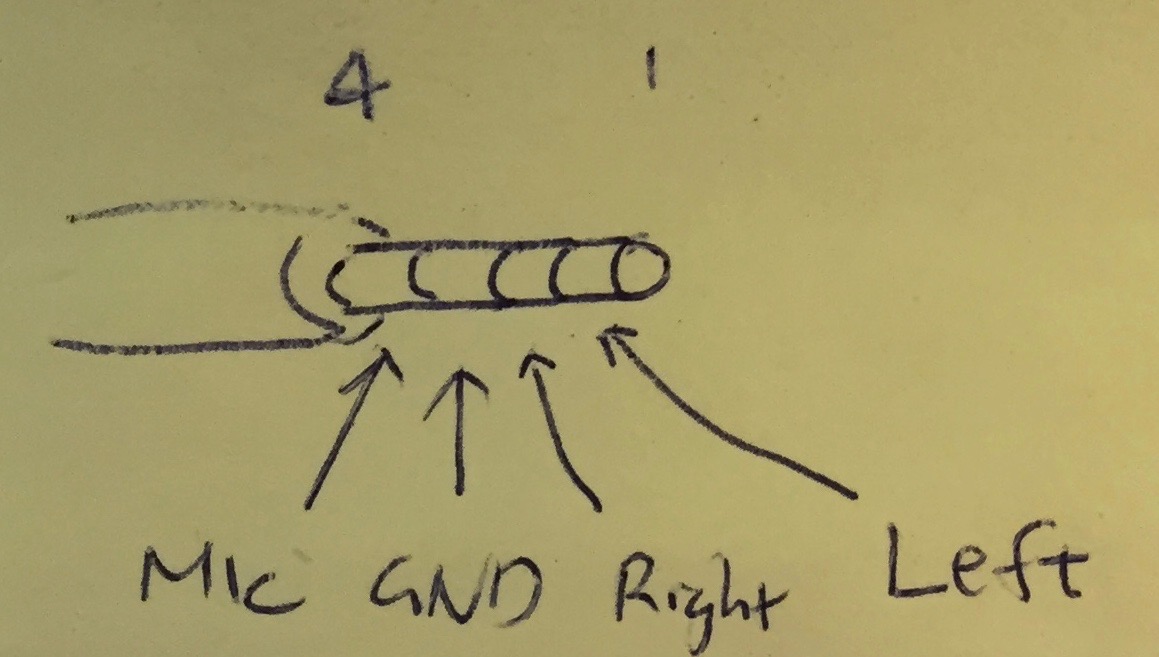 4 1
MIC GND Right Left